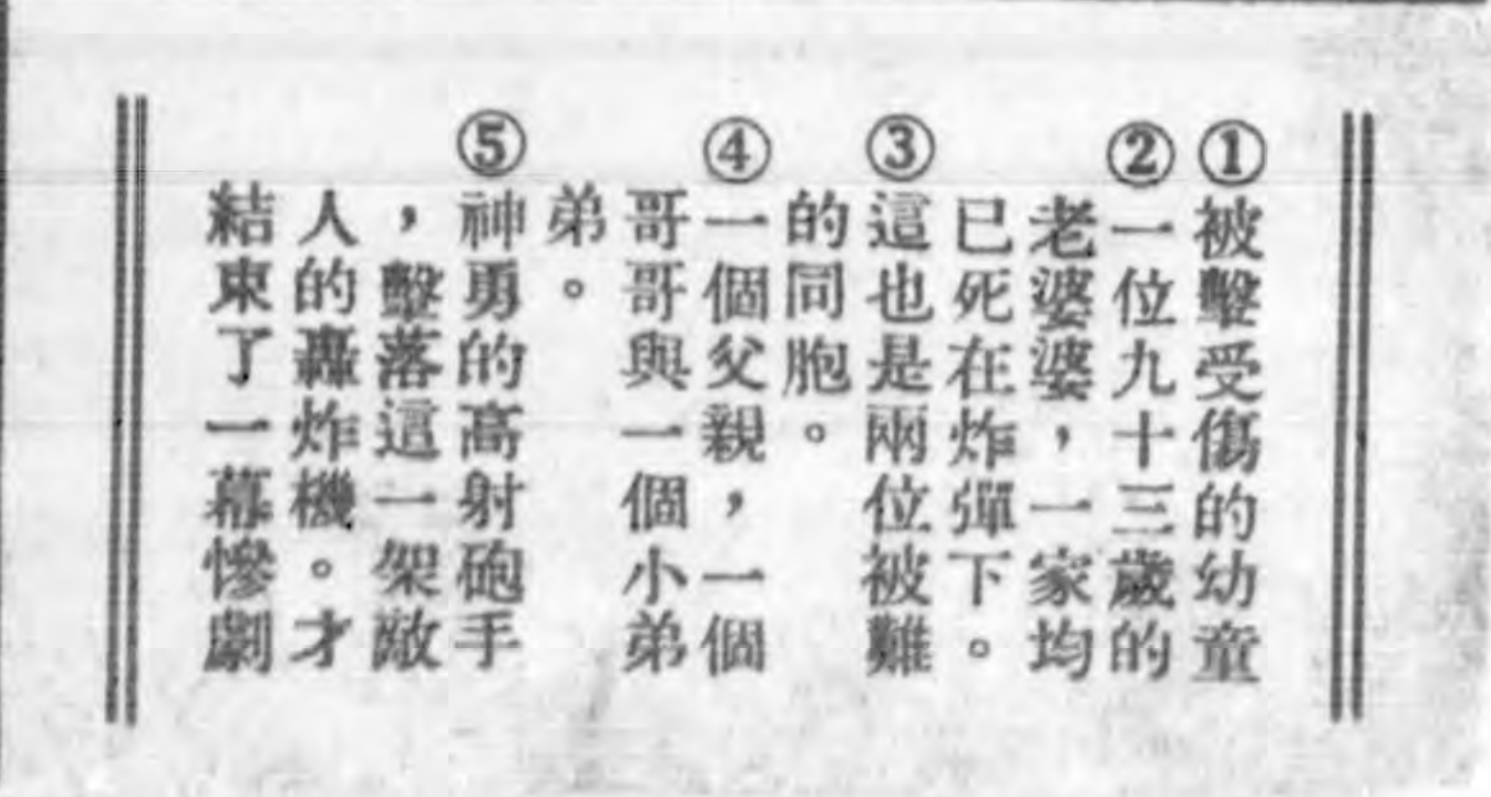 ①被擊受傷的幼童
②一位九十三歲的
老婆婆，一家均
已死在炸彈下。
③這也是兩位被難
的同胞。
④一個父親，一個
哥哥與一個小弟
弟。
⑤神勇的高射砲手
，擊落這一架敵
人的轟炸機。才
結束了一幕慘劇